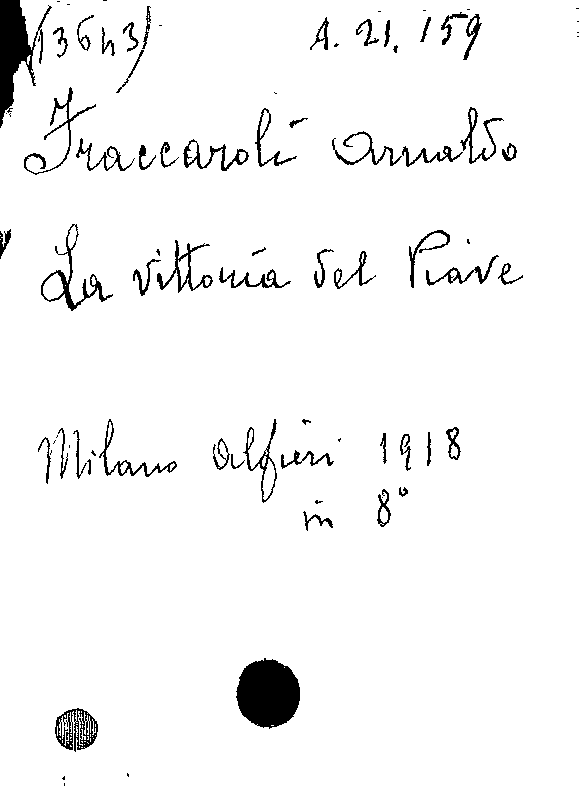 (13643) A. 21. 159
Fraccaroli Arnaldo
La vittoria del Piave
Milano Alfieri 1918
in 8°